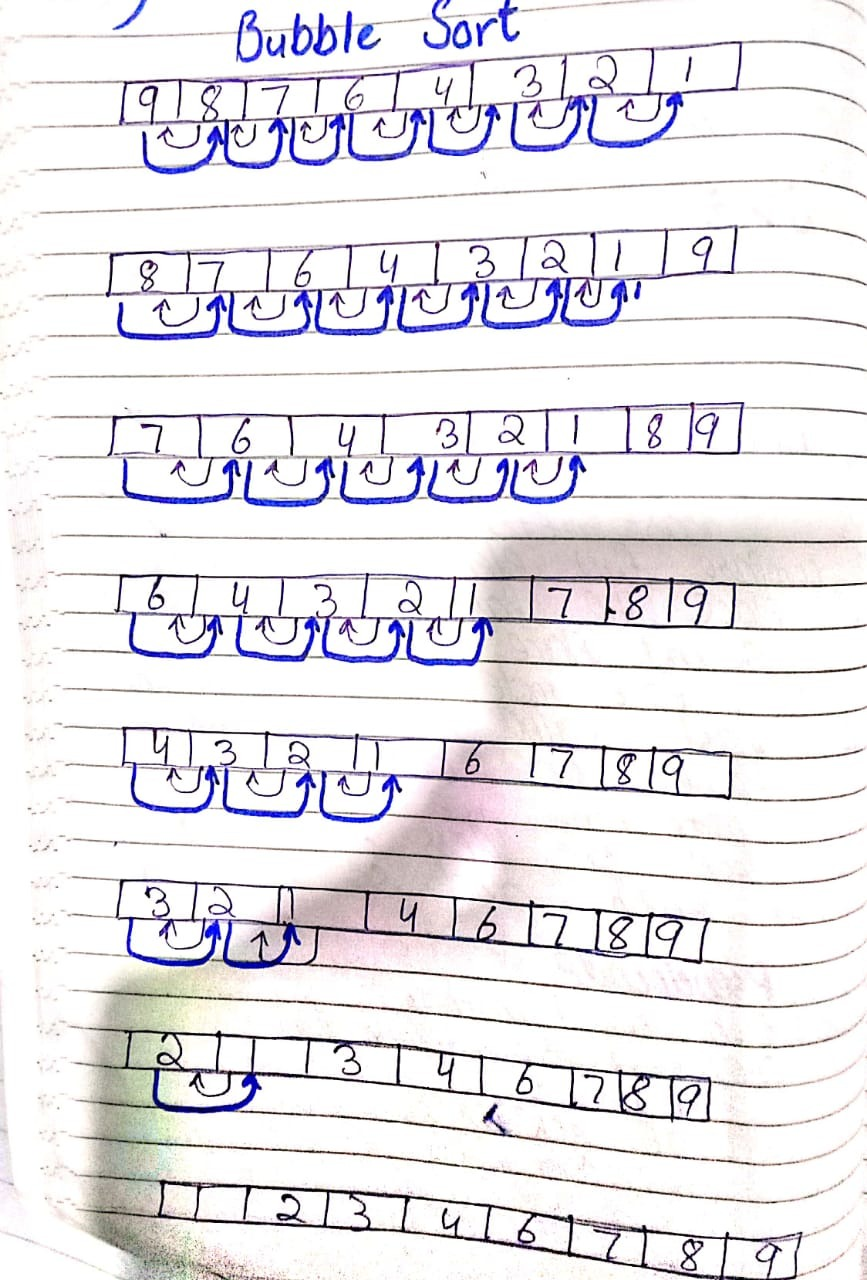 Bubble Sort
9 8 7 6 4 3 2 1
8 7 6 4 3 2 1 9
7 6 4 3 2 1 8 9
6 4 3 2 1 7 8 9
4 3 2 1 6 7 8 9
3 2 1 4 6 7 8 9
2 1 3 4 6 7 8 9
1 2 3 4 6 7 8 9